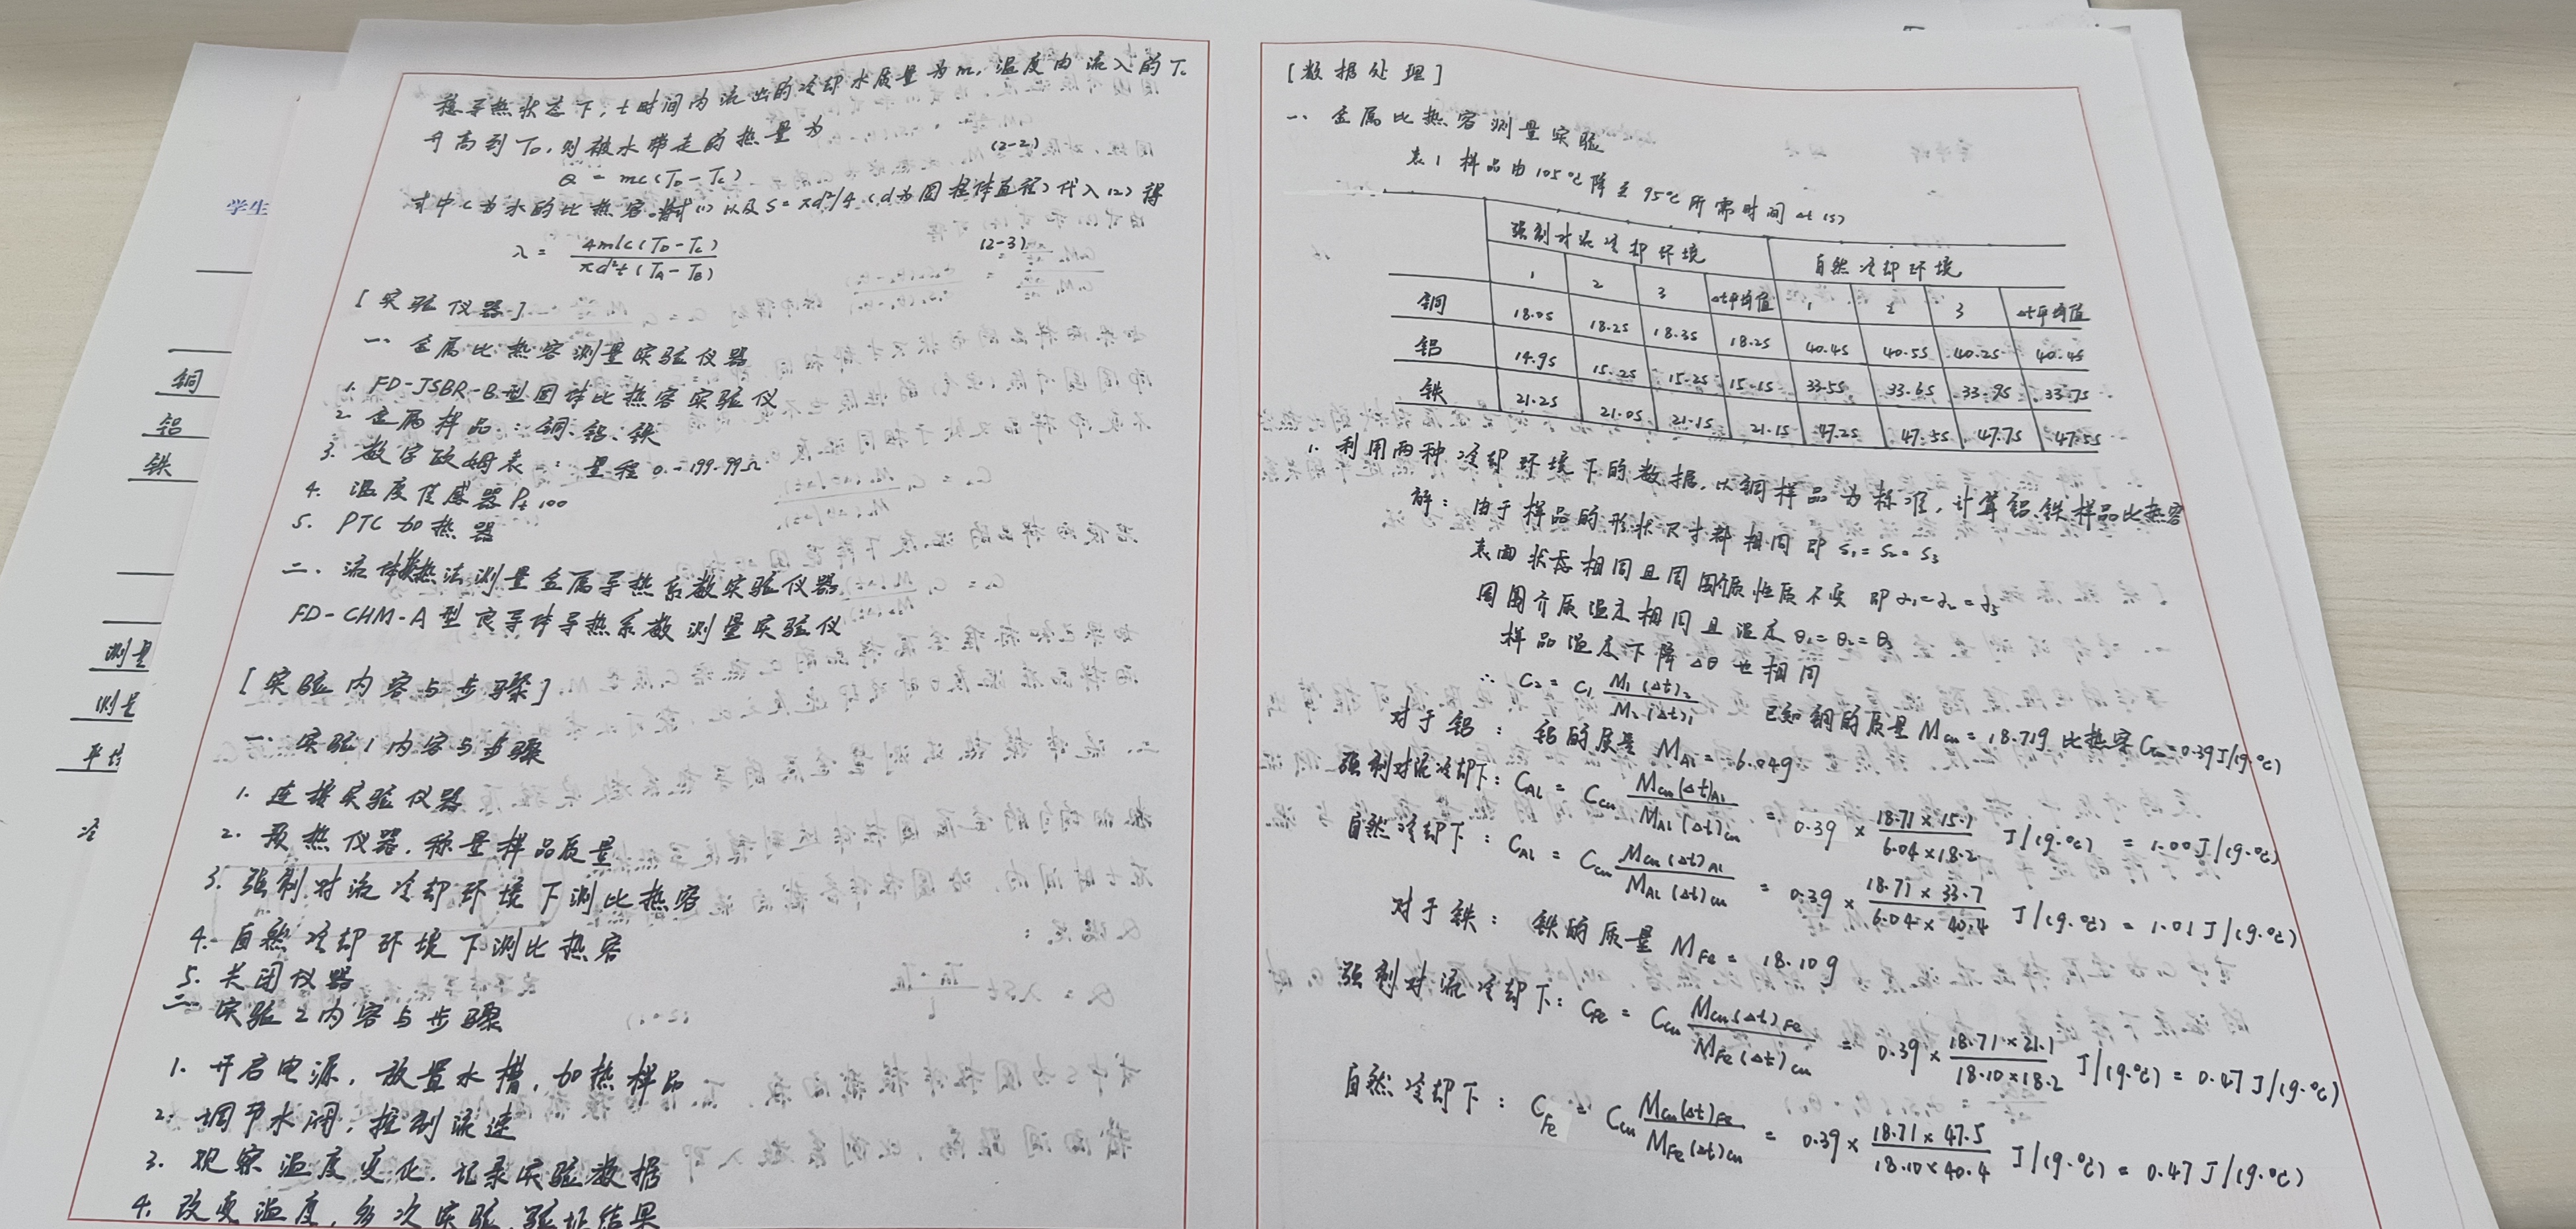 学生
铜
铝
铁
测量
测量
冷
稳导热状态下,t时间内流出的冷却水质量为m,温度由流入的Tc
升高到TD,则被水带走的热量为
Q = mc(TD-Tc) (2-2)
式中c为水的比热容。将式(1)以及S=πd²/4(d为圆柱体直径)代入(2)得
λ = 4mlc(TD-Tc) / πd²t(TA-TB) (2-3)
[实验仪器]
一、金属比热容测量实验仪器
1. FD-JSBR-B型固体比热容实验仪
2. 金属样品:铜、铝、铁
3. 数字欧姆表:量程0-199.99Ω
4. 温度传感器Pt100
5. PTC加热器
二、流体换热法测量金属导热系数实验仪器
FD-CHM-A型良导体导热系数测量实验仪
[实验内容与步骤]
一、实验1内容与步骤
1. 连接实验仪器
2. 预热仪器,称量样品质量
3. 强制对流冷却环境下测比热容
4. 自然冷却环境下测比热容
5. 关闭仪器
二、实验2内容与步骤
1. 开启电源,放置水槽,加热样品
2. 调节水阀,控制流速
3. 观察温度变化,记录实验数据
4. 改变温度,多次实验,验证结果
[数据处理]
一、金属比热容测量实验
表1 样品由105℃降至95℃所需时间Δt(s)
强制对流冷却环境 自然冷却环境
1 2 3 Δt平均值 1 2 3 Δt平均值
铜 18.0s 18.2s 18.3s 18.2s 40.4s 40.5s 40.2s 40.4s
铝 14.9s 15.2s 15.2s 15.1s 33.5s 33.6s 33.9s 33.7s
铁 21.2s 21.0s 21.1s 21.1s 47.2s 47.5s 47.7s 47.5s
1. 利用两种冷却环境下的数据,以铜样品为标准,计算铝、铁样品比热容
解:由于样品的形状尺寸都相同 即S1=S2=S3
表面状态相同且周围介质性质不变 即α1=α2=α3
周围介质温度相同且温度θ1=θ2=θ3
样品温度下降Δθ也相同
∴ C2 = C1 M1(Δt)2 / M2(Δt)1 已知铜的质量Mcu=18.71g 比热容Ccu=0.39J/(g·℃)
对于铝:铝的质量 MAl = 6.04g
强制对流冷却下:CAl = Ccu Mcu(Δt)Al / MAl(Δt)cu = 0.39 × 18.71×15.1 / 6.04×18.2 J/(g·℃) = 1.00J/(g·℃)
自然冷却下:CAl = Ccu Mcu(Δt)Al / MAl(Δt)cu = 0.39 × 18.71×33.7 / 6.04×40.4 J/(g·℃) = 1.01J/(g·℃)
对于铁:铁的质量 MFe = 18.10g
强制对流冷却下:CFe = Ccu Mcu(Δt)Fe / MFe(Δt)cu = 0.39 × 18.71×21.1 / 18.10×18.2 J/(g·℃) = 0.47J/(g·℃)
自然冷却下:CFe = Ccu Mcu(Δt)Fe / MFe(Δt)cu = 0.39 × 18.71×47.5 / 18.10×40.4 J/(g·℃) = 0.47J/(g·℃)